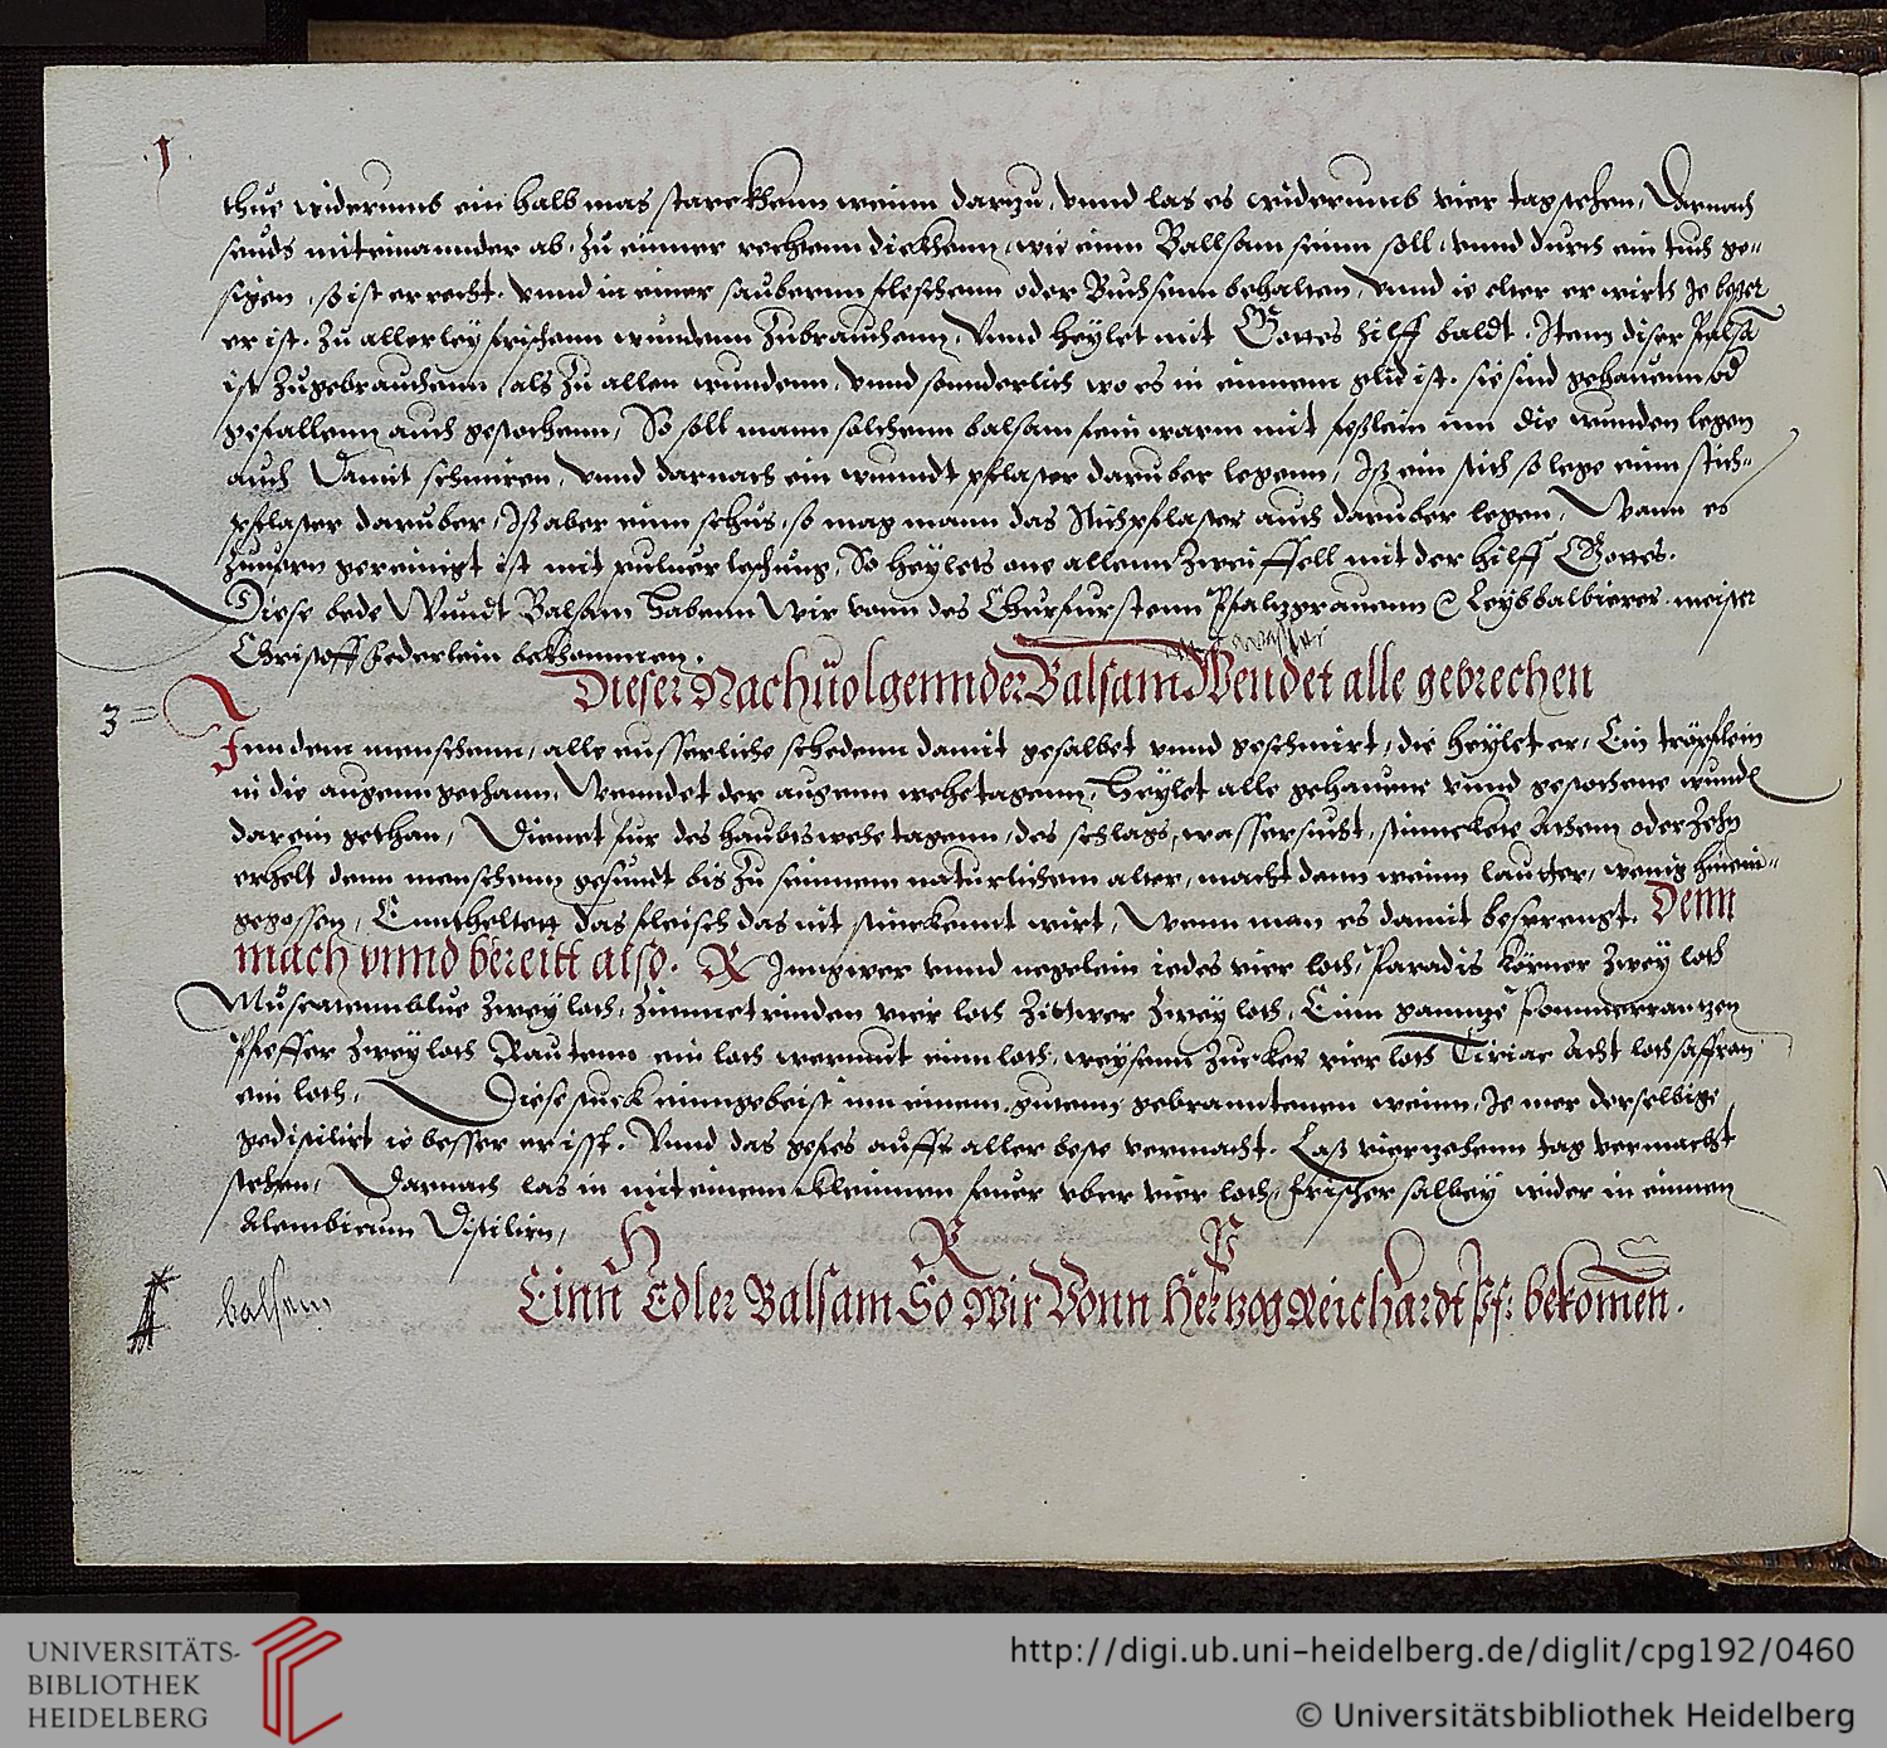 .1.
thue widerumb ein halb mas starckhenn weinn darzu, vnnd las es widerumb vier tag stehen, Darnach
seuds miteinannder ab, zu einner rechtenn dickhenn, wie einn Ballsam seinn soll, vnnd durch ein tuch ge„
sigen, so ist er recht. vnnd in einer saubernn fleschenn oder Buchsenn behalten, vnnd ie elter er wirth Je besser
er ist. Zu allerley frischenn wundenn Zubrauchenn, Vnnd heylet mit Gottes hilff baldt. Item diser Palsā
ist Zugebrauchenn, als Zu allen wundenn, vnnd sonnderlich wo es in einnem glid ist. sie sind gehauenn od
gefallenn auch gestochenn, So soll mann solchenn balsam fein warm mit feßlein inn die wunden legen
auch Damit schmiren, Vnnd darnach ein wunndt pflaster daruber legenn, Ist ein stich so lege einn stich„
pflaster daruber, Ist aber einn schus, so mag mann das Stichpflaster auch daruber legen, Wann es
Zuuorn gereinigt ist mit puluer leschung, So heylets one allenn Zweiffell mit der hilff Gottes.
Diese bede Wundt Balsam Habenn Wir vonn des Churfurstenn Pfaltzgrauenn Leybbalbierer meister
Christoff Federlein bekhommen.
Dieser Nachuolgennder Balsam Wendet alle gebrechen
3=
Inn dem menschenn, alle eusserliche schedenn damit gesalbet vnnd geschmirt, die heylet er, Ein tröpflein
in die augenn gethann, Wenndet der augenn wehetagenn, Heylet alle gehauene vnnd gestochene wundē
darein gethan, Dienet fur des haubtswehetagenn, des schlags, wassersucht, stinnckene Athem oder Zehn
erhelt denn menschenn gesundt bis Zu seinnem naturlichem alter, macht denn weinn lautter, wenig hinein„
gegossen, Enntheltett das fleisch das nit stinckennt wirt, Wenn man es damit besprengt. Denn
mach vnnd bereitt also. R Inngwer vnnd negelein iedes vier loth, Paradis körner Zwey loth
Muscatennblue Zwey loth, Zimmetrinden vier loth Zittwer Zwey loth, Einn ganntze Pommerrantzen
Pfeffer Zwey loth Rautenn ein loth wermut einn loth, weysenn Zucker vier loth Tiriac Acht loth saffran
ein loth, Diese stuck einngebeist inn einem gutenn gebranntenen weinn, Je mer derselbige
gedistilirt ie besser er isst. Vnnd das gefes auffs aller beste vermacht. Laß vierzehenn tag vermacht
stehen, Darnach las in mit einem kleinnen feuer vber vier loth frischer salbey wider in einnen
Alembicum Distilirn,
balsem
H R P
Einn Edler Balsam So Wir Vonn Hertzog Reichardt Pf: bekomen.
UNIVERSITÄTS-
BIBLIOTHEK
HEIDELBERG
http://digi.ub.uni-heidelberg.de/diglit/cpg192/0460
© Universitätsbibliothek Heidelberg